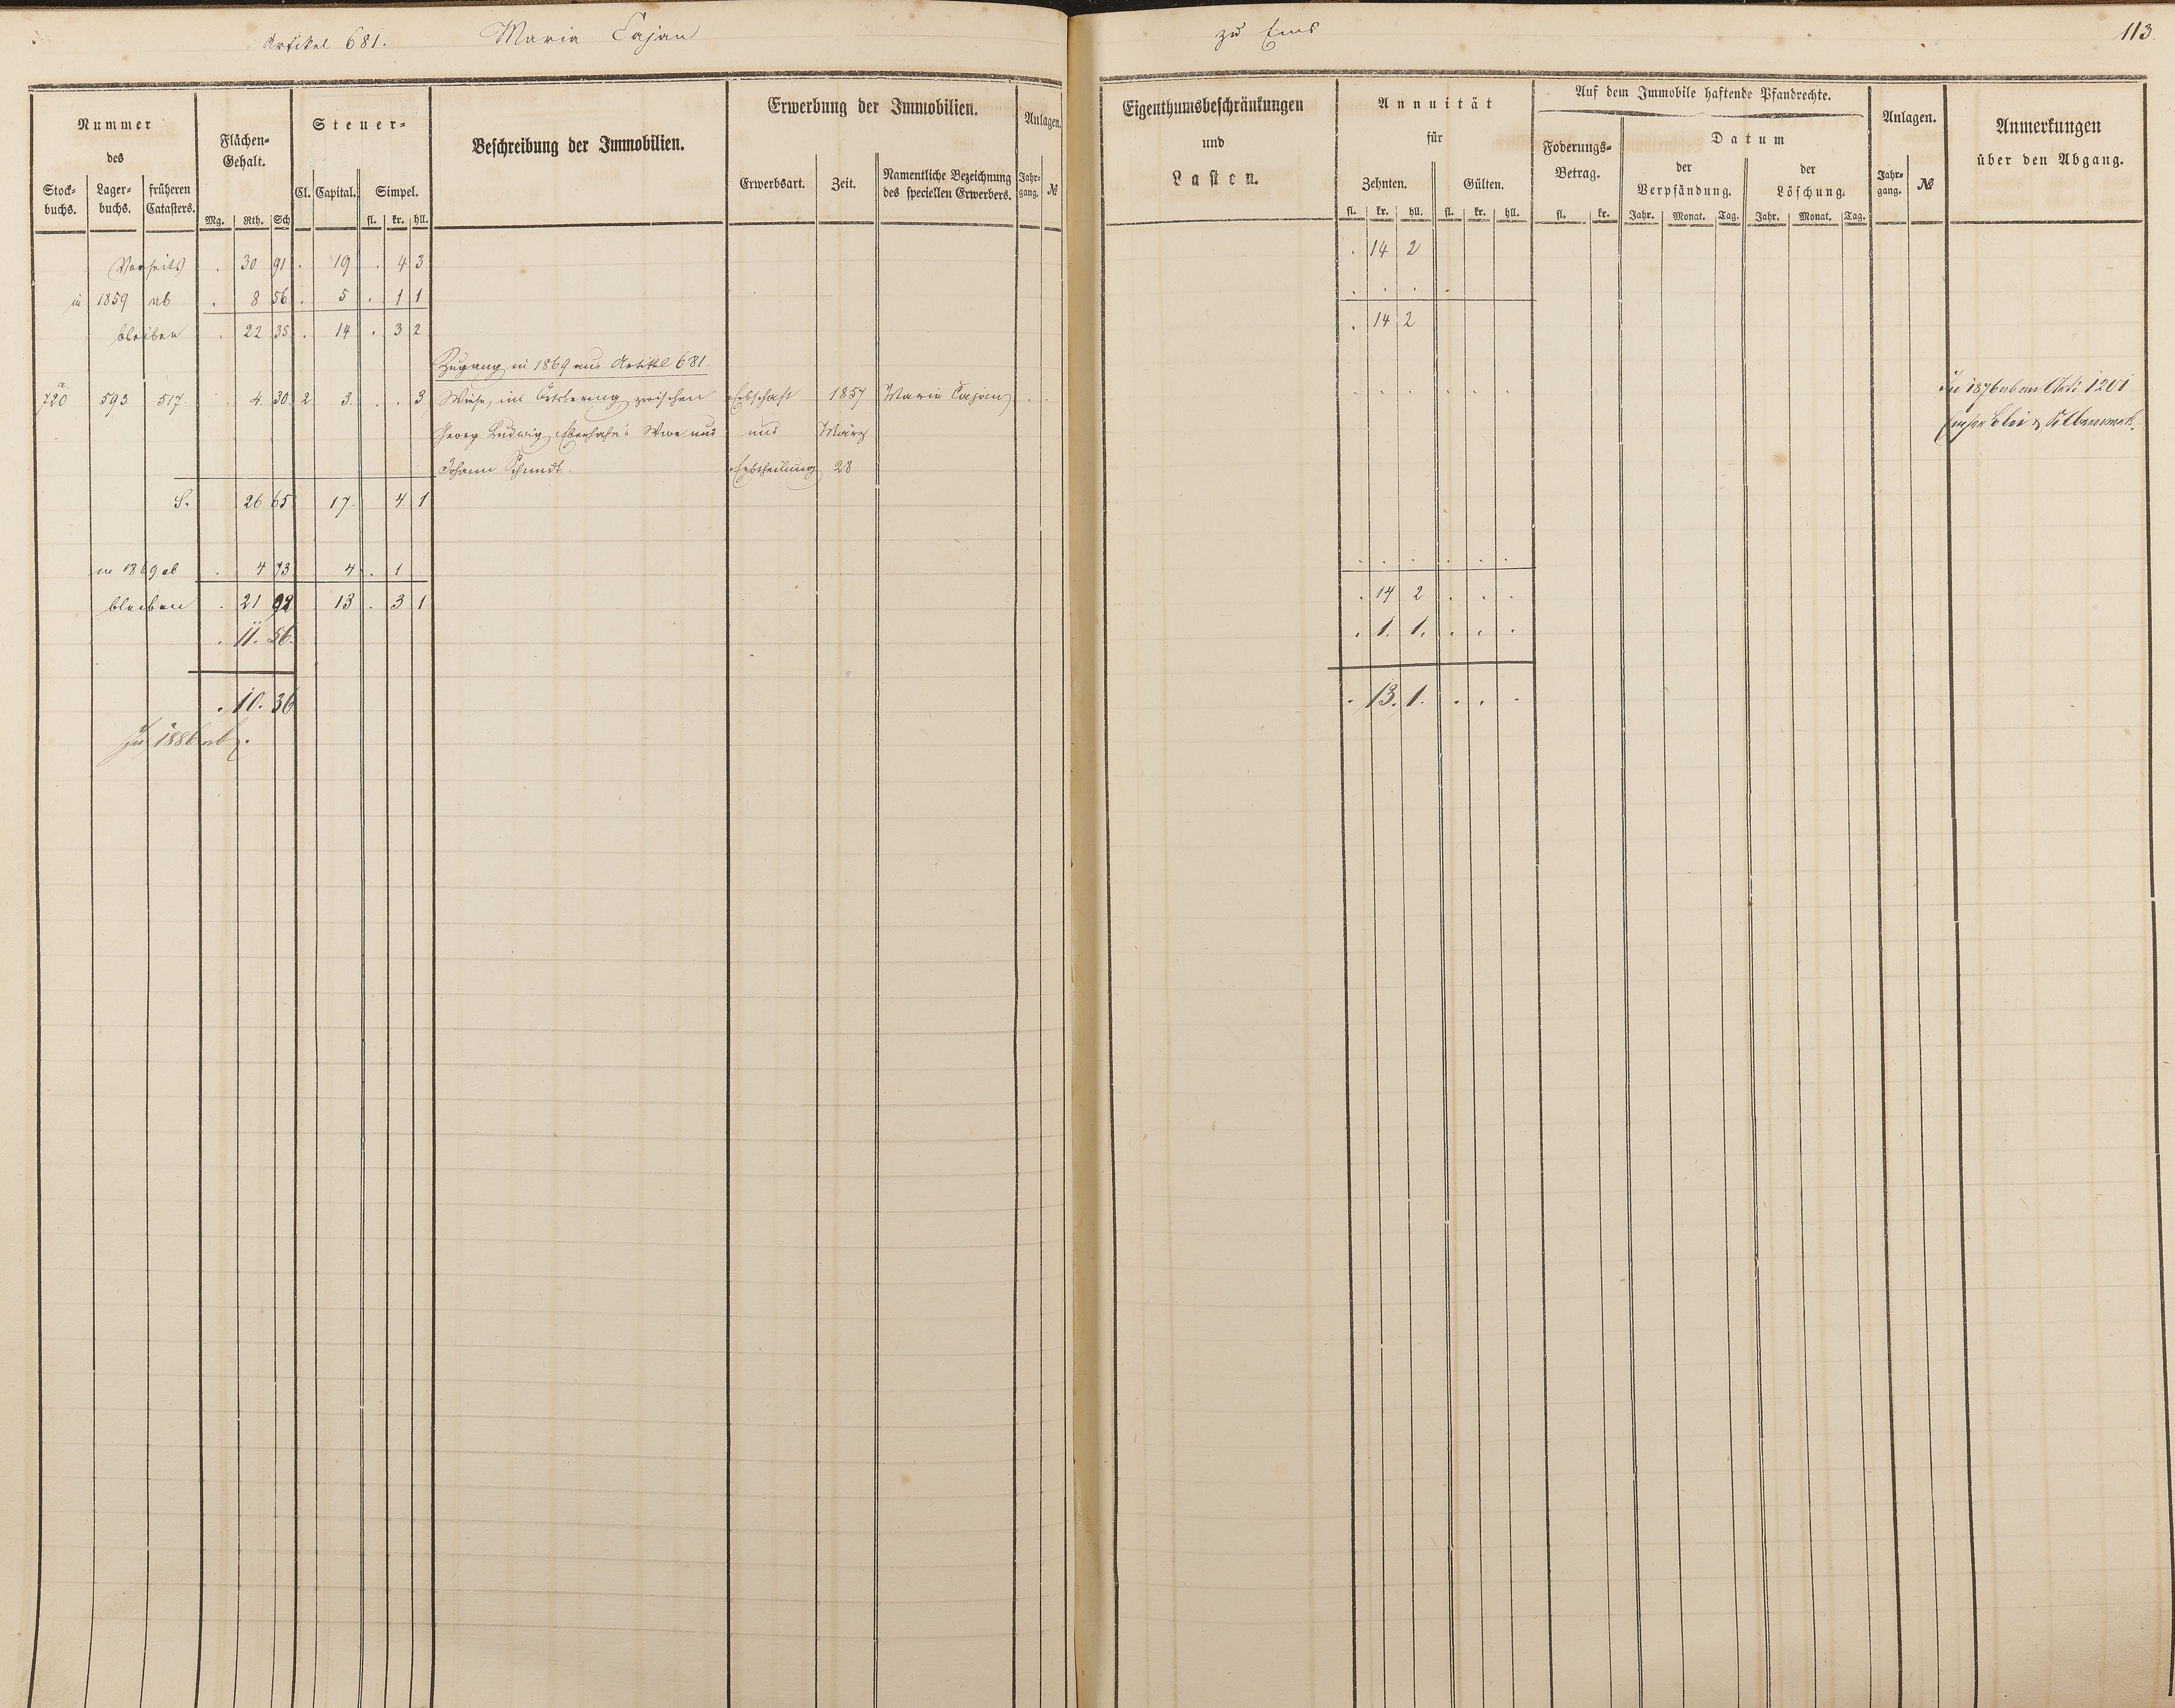 Artikel 681. Maria Cajan zu Ems 113.
Nummer des
Stock-buchs. Lager-buchs. früheren Catasters.
Flächen-Gehalt.
Mg. Rth. Sch
Steuer-
Cl. Capital. Simpel.
fl. kr. hll.
Beschreibung der Immobilien.
Erwerbung der Immobilien.
Erwerbsart. Zeit. Namentliche Bezeichnung des speciellen Erwerbers.
Anlagen.
Jahr-gang. №
Eigenthumsbeschränkungen
und
Lasten.
Annuität
für
Zehnten. Gülten.
fl. kr. hll. fl. kr. hll.
Auf dem Immobile haftende Pfandrechte.
Foderungs-Betrag.
fl. kr.
Datum
der Verpfändung. der Löschung.
Jahr. Monat. Tag. Jahr. Monat. Tag.
Anlagen.
Jahr-gang. №
Anmerkungen
über den Abgang.
Vorseits . 30 91 . 19 . 4 3 . 14 2
in 1859 ab . 8 56 . 5 . 1 1 . . . .
bleiben . 22 35 . 14 . 3 2 . 14 2
Zugang in 1869 aus Artikel 681.
720 a. 593 517 . 4. 30 2 3. . . 3 Wiese, im zwischen Erbschaft 1857 Maria Cajan . . . . . . . . In 1876 ab an Arti 1201
Georg Ludwig Wwe und und März Emser Blei & Silberwerk.
Johann Schmidt. Erbtheilung 28
S. 26 65 17. 4. 1
in 1869 ab . 4 73 4 . 1 . . . . . .
bleiben . 21 92 13 . 3 1 . 14 2 . . .
. 11. 56. . 1. 1. . . .
. 10. 36 . 13. 1. . . .
In 1886 ab.